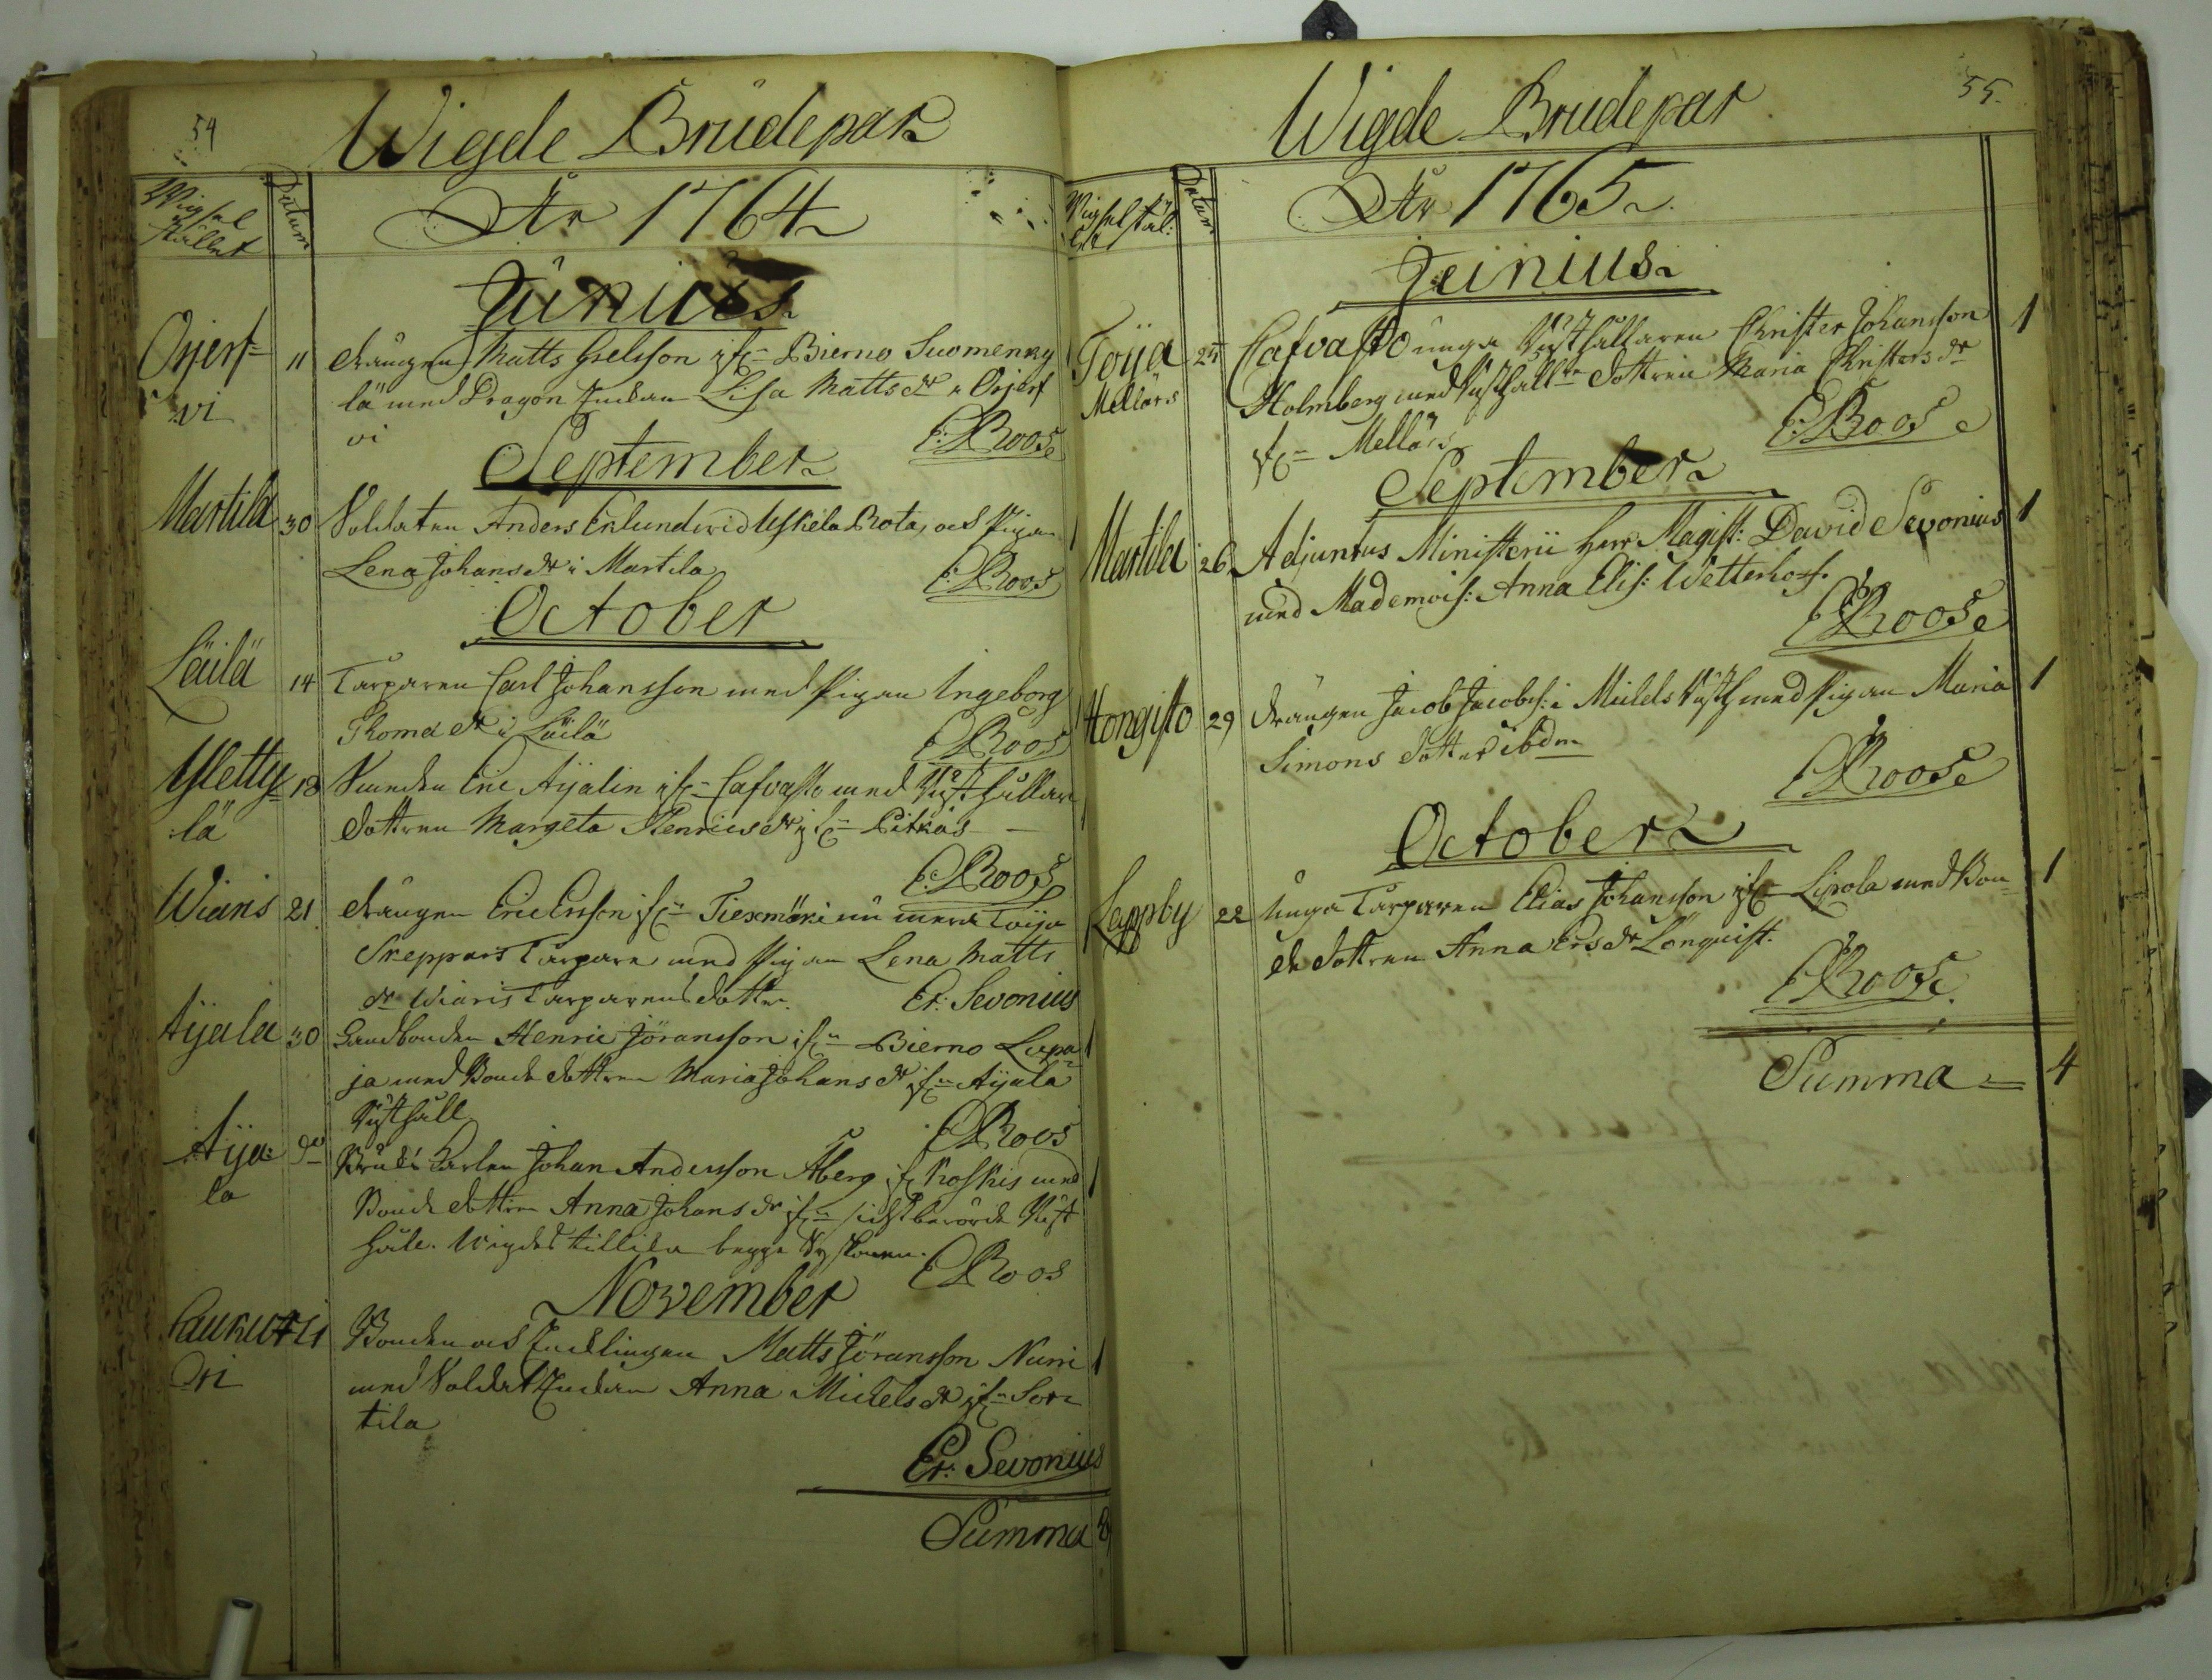 54
Wigde Brudepar
Wigsel
stället
Datum
År 1764
Junius
Orjerf=
vi
11
drängen Matts Grelsson ifrån Bierno Suomenky
lä med Dragon Enckan Lisa Matts dr i Orjerf
vi
E. Roos
September
Martila
30
Soldaten Anders Eklund wid Uskela Rota, och Pigan
Lena Johans dr i Martila
E. Roos
October
Läilä
14
Torparen Carl Johansson med Pigan Ingeborg
Thomæ dr i Läilä
E. Roos
Ylletty=
lä
18
Smeden Eric Aijalin ifrån Cafvasto med Rust hållare
dottren Margeta Henrics dr ifrån Pitkäs
E. Roos
Wiaris
21
drängen Eric Ersson ifrån Tiexmäki nu mera Toija
Skeppars Torpare med Pigan Lena Matts
dr Wiaris Torparens dotter.
Er. Sevonius
Aijala
30
Landbonden Henric Jöransson ifrån Bierno Lupa
ja med Bonde dottren Maria Johans dr ifrån Aijala
Rusthåll
E Roos
1
Aija=
la
do
Bruks Karlen Johan Andersson Åberg ifr. Koskis med
Bonde dottren Anna Johans dr ifrån sidstberörde Rust
håll. Wigdes tillika begge Syskonen.
E Roos
1
November
11
Bonden och Encklingen Matts Jöransson Numi
med Soldat Enckan Anna Michels dr ifrån Sor=
tila
1
Er. Sevonius
Summa 8
55.
Wigde Brudepar
Wigsel stäl:
let
Datum
År 1765
Junius
Toija
Mellårs
24
Cafvasto unga Rusthållaren Christer Johansson
Holmberg med Rusthåll:re dottren Maria Christers dr
ifrån Mellårs
E. Roos
1
September
Martila
26
Adjunctus Ministerii Herr Magist: David Sevonius
med Mademois: Anna Elis: Wetterhof.
E Roos
1
Hongisto
29
drängen Jacob Jacobs: i Michels Rusth. med Pigan Maria
Simons dotter ibdm
E Roos
1
October
Lappby
22
Unga Torparen Elias Johansson ifrån Lipola med Bon
de dottren Anna Ers dr Lönquist.
E Roos
1
Summa = 4